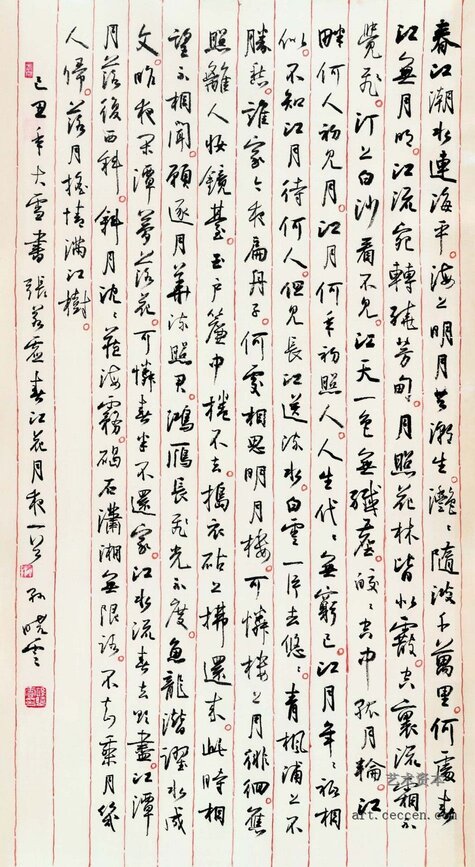 春江潮水連海平海上明月共潮生灩々隨波千萬里何處春
江無月明江流宛轉繞芳甸月照花林皆似霰空裏流霜不
覺飛汀上白沙看不見江天一色無纖塵皎々空中孤月輪江
畔何人初見月江月何年初照人人生代々無窮已江月年々祗相
似不知江月待何人但見長江送流水白雲一片去悠々青楓浦上不
勝愁誰家今夜扁舟子何處相思明月樓可憐樓上月徘徊應
照離人妝鏡臺玉戶簾中捲不去搗衣砧上拂還來此時相
望不相聞願逐月華流照君鴻雁長飛光不度魚龍潛躍水成
文昨夜閑潭夢落花可憐春半不還家江水流春去欲盡江潭
月落復西斜斜月沈々藏海霧碣石瀟湘無限路不知乘月幾
人歸落月搖情滿江樹
己丑年大雪書張若虛春江花月夜一首 孫曉雲
艺术资本
art.ceccen.com